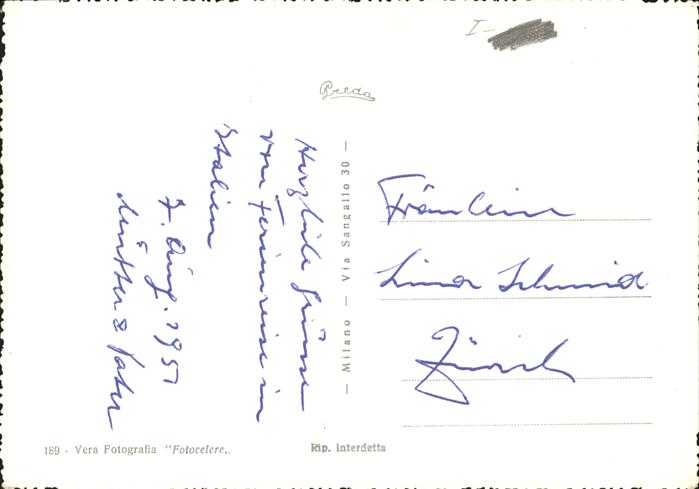 I-
Breda
— Milano — Via Sangallo 30 —
Herzliche Grüsse
von Ferienreise in
Italien
7. Aug. 1951
Mutter & Vater
Fräulein
Schmid
Zürich
189 - Vera Fotografia "Fotocelere„
Rip. interdetta